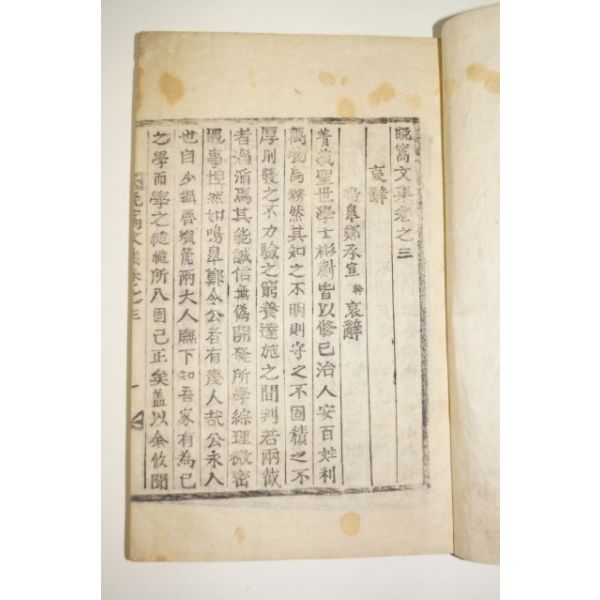 晩窩文集卷之三
哀辭
鳴皐鄭承宣 榦 哀辭
菁莪聖世學士彬蔚皆以修己治人安百姓利
萬物爲務然其知之不明則守之不固積之不
厚則發之不力驗之窮養達施之間判若兩截
者滔滔焉其能誠信無僞開發所學綜理微密
隨事坦然如鳴皐鄭令公者有幾人哉公永入
也自少攝齊塤篪兩大人廡下知吾家有爲己
之學而學之慥慥所入固已正矣盖以余攸聞
晩窩文集卷之三 一